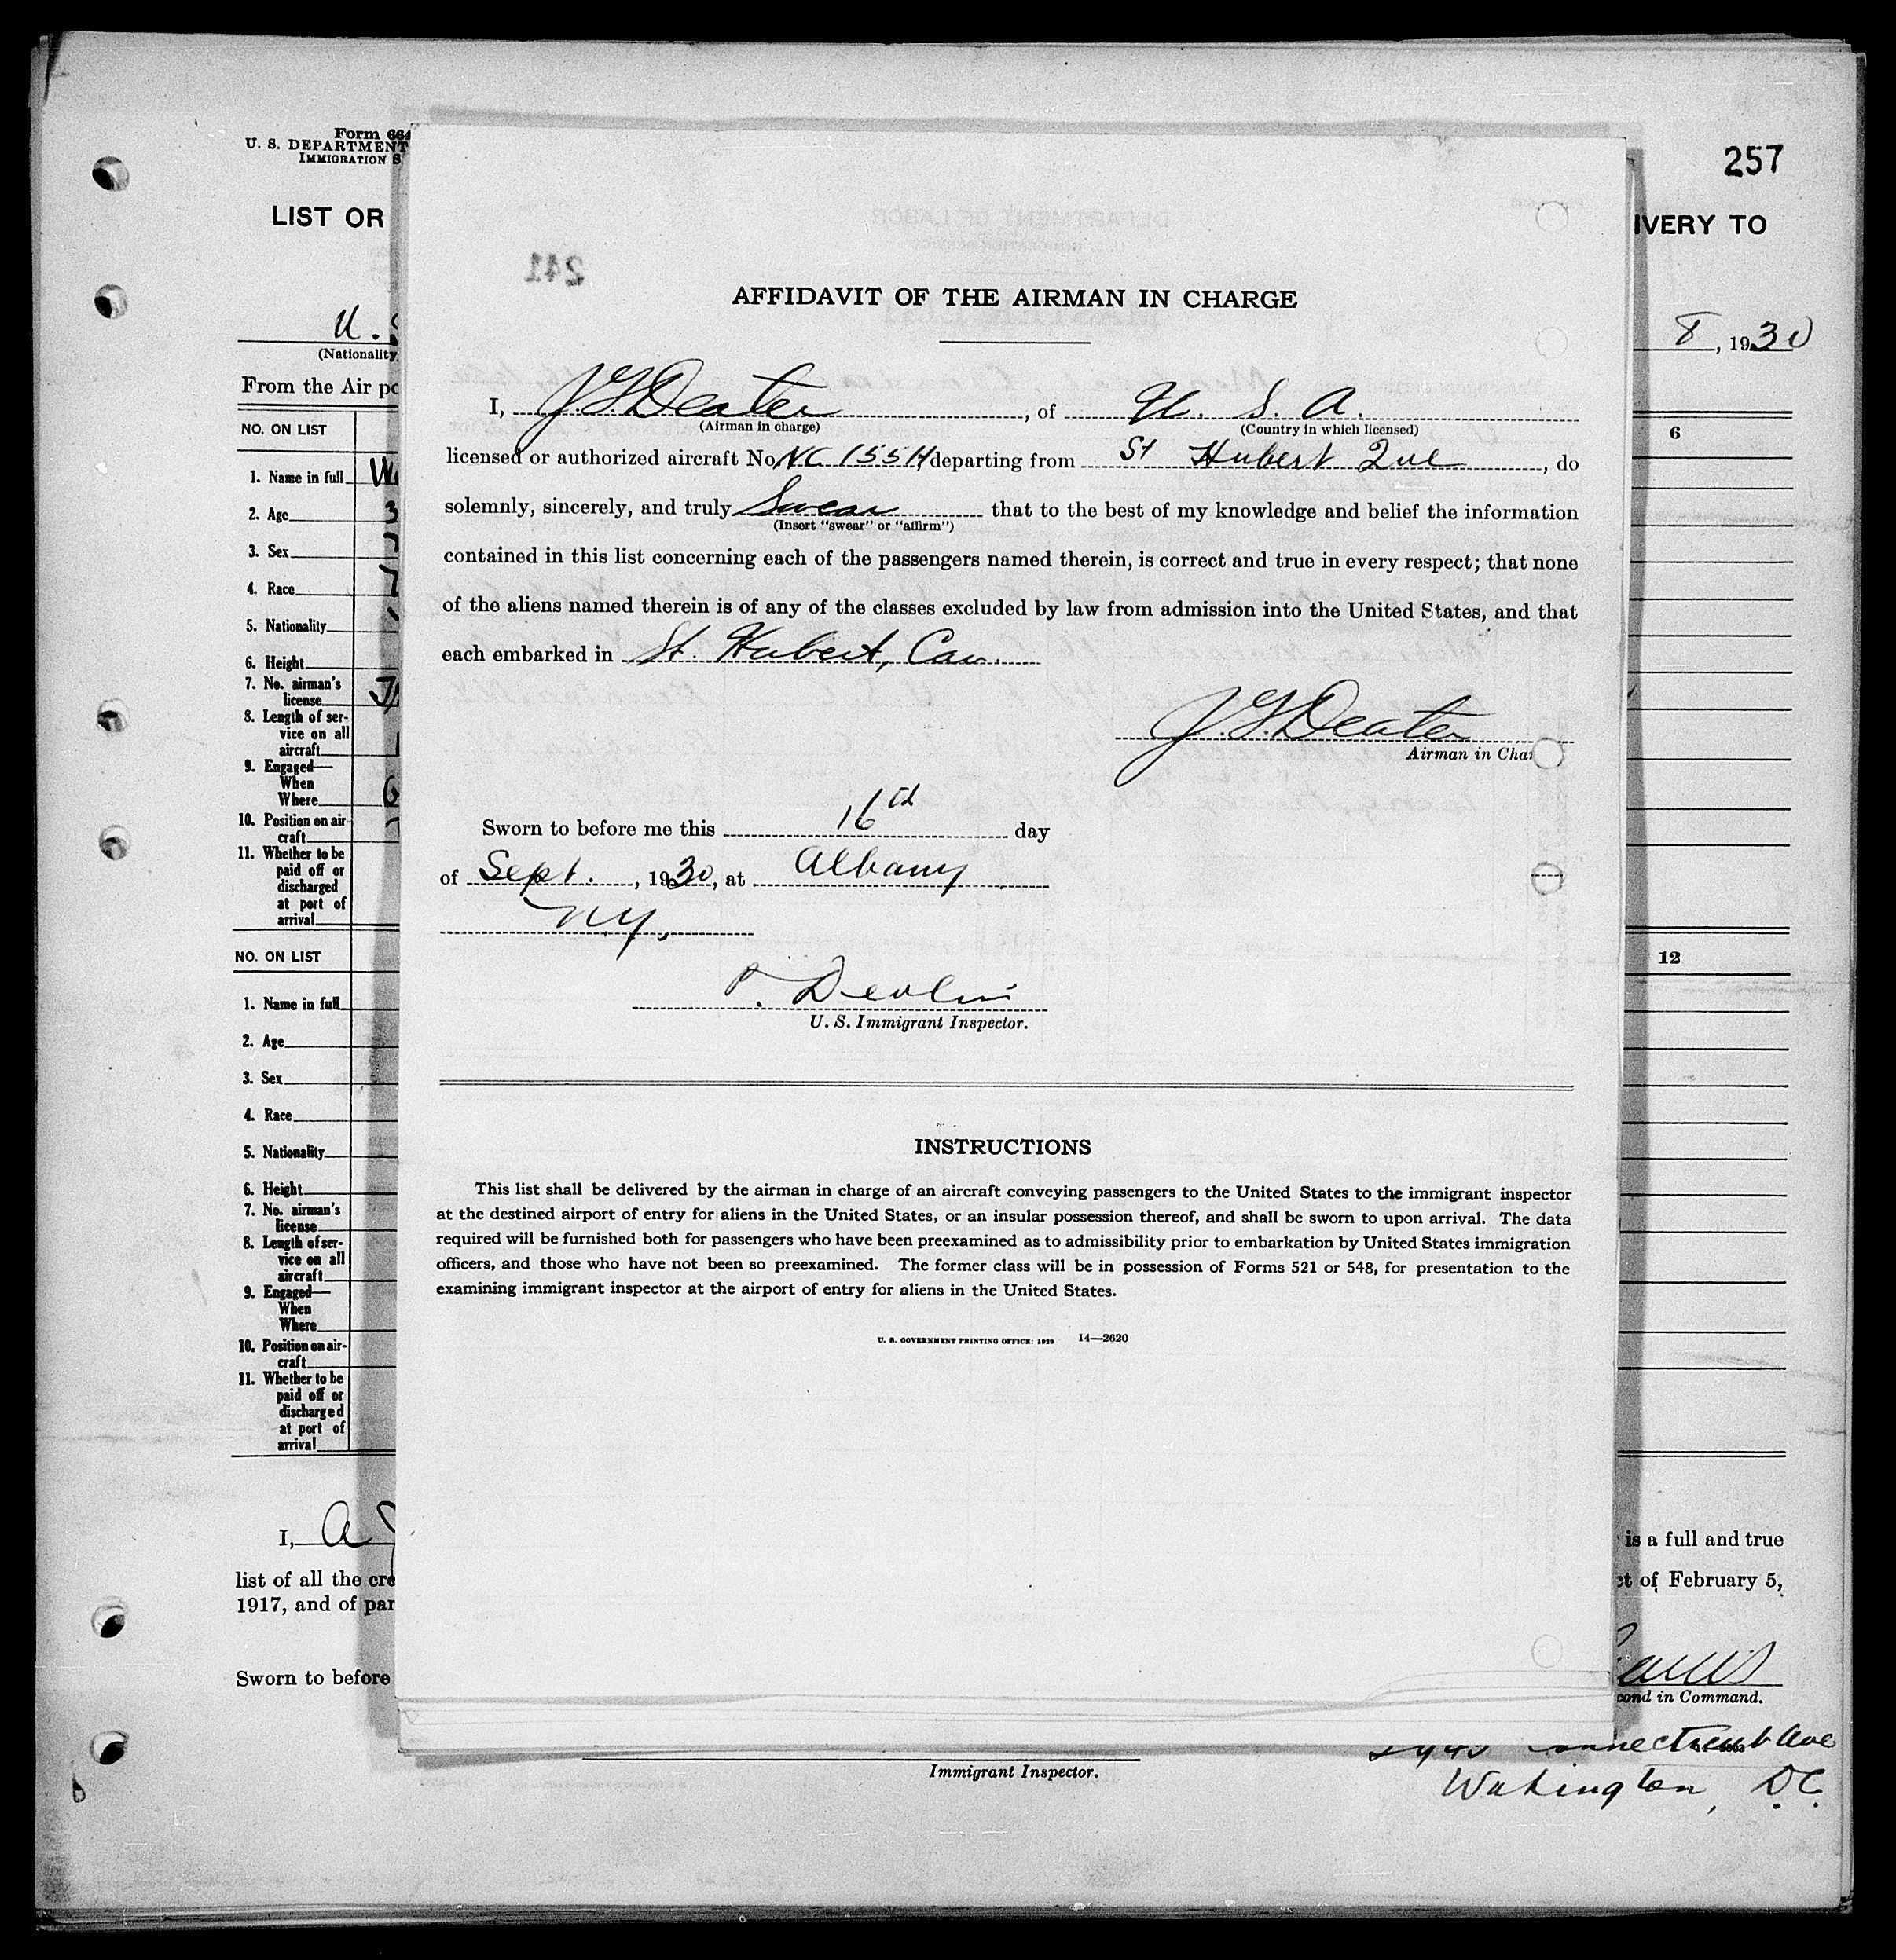 Form 664
U. S. DEPARTMENT
IMMIGRATION S
257
LIST OR
IVERY TO
U. S
(Nationality
8, 1930
From the Air po
NO. ON LIST
6
1. Name in full
2. Age
3. Sex
4. Race
5. Nationality
6. Height
7. No. airman's
license
8. Length of ser-
vice on all
aircraft
9. Engaged—
When
Where
10. Position on air-
craft
11. Whether to be
paid off or
discharged
at port of
arrival
NO. ON LIST
12
1. Name in full
2. Age
3. Sex
4. Race
5. Nationality
6. Height
7. No. airman's
license
8. Length of ser-
vice on all
aircraft
9. Engaged—
When
Where
10. Position on air-
craft
11. Whether to be
paid off or
discharged
at port of
arrival
I, A
is a full and true
list of all the cre
ct of February 5,
1917, and of par
Sworn to before
cond in Command.
Immigrant Inspector.
Connecticut Ave
Wahington, D.C.
241
AFFIDAVIT OF THE AIRMAN IN CHARGE
I, J. G. Deater, of U. S. A.
(Airman in charge) (Country in which licensed)
licensed or authorized aircraft No. NC 155H departing from St Hubert Que, do
solemnly, sincerely, and truly Swear that to the best of my knowledge and belief the information
(Insert "swear" or "affirm")
contained in this list concerning each of the passengers named therein, is correct and true in every respect; that none
of the aliens named therein is of any of the classes excluded by law from admission into the United States, and that
each embarked in St. Hubert, Can.
J. G. Deater
Airman in Char
Sworn to before me this 16th day
of Sept., 1930, at Albany
N.Y.
P. Devlin
U. S. Immigrant Inspector.
INSTRUCTIONS
This list shall be delivered by the airman in charge of an aircraft conveying passengers to the United States to the immigrant inspector
at the destined airport of entry for aliens in the United States, or an insular possession thereof, and shall be sworn to upon arrival. The data
required will be furnished both for passengers who have been preexamined as to admissibility prior to embarkation by United States immigration
officers, and those who have not been so preexamined. The former class will be in possession of Forms 521 or 548, for presentation to the
examining immigrant inspector at the airport of entry for aliens in the United States.
U. S. GOVERNMENT PRINTING OFFICE: 1929 14—2620